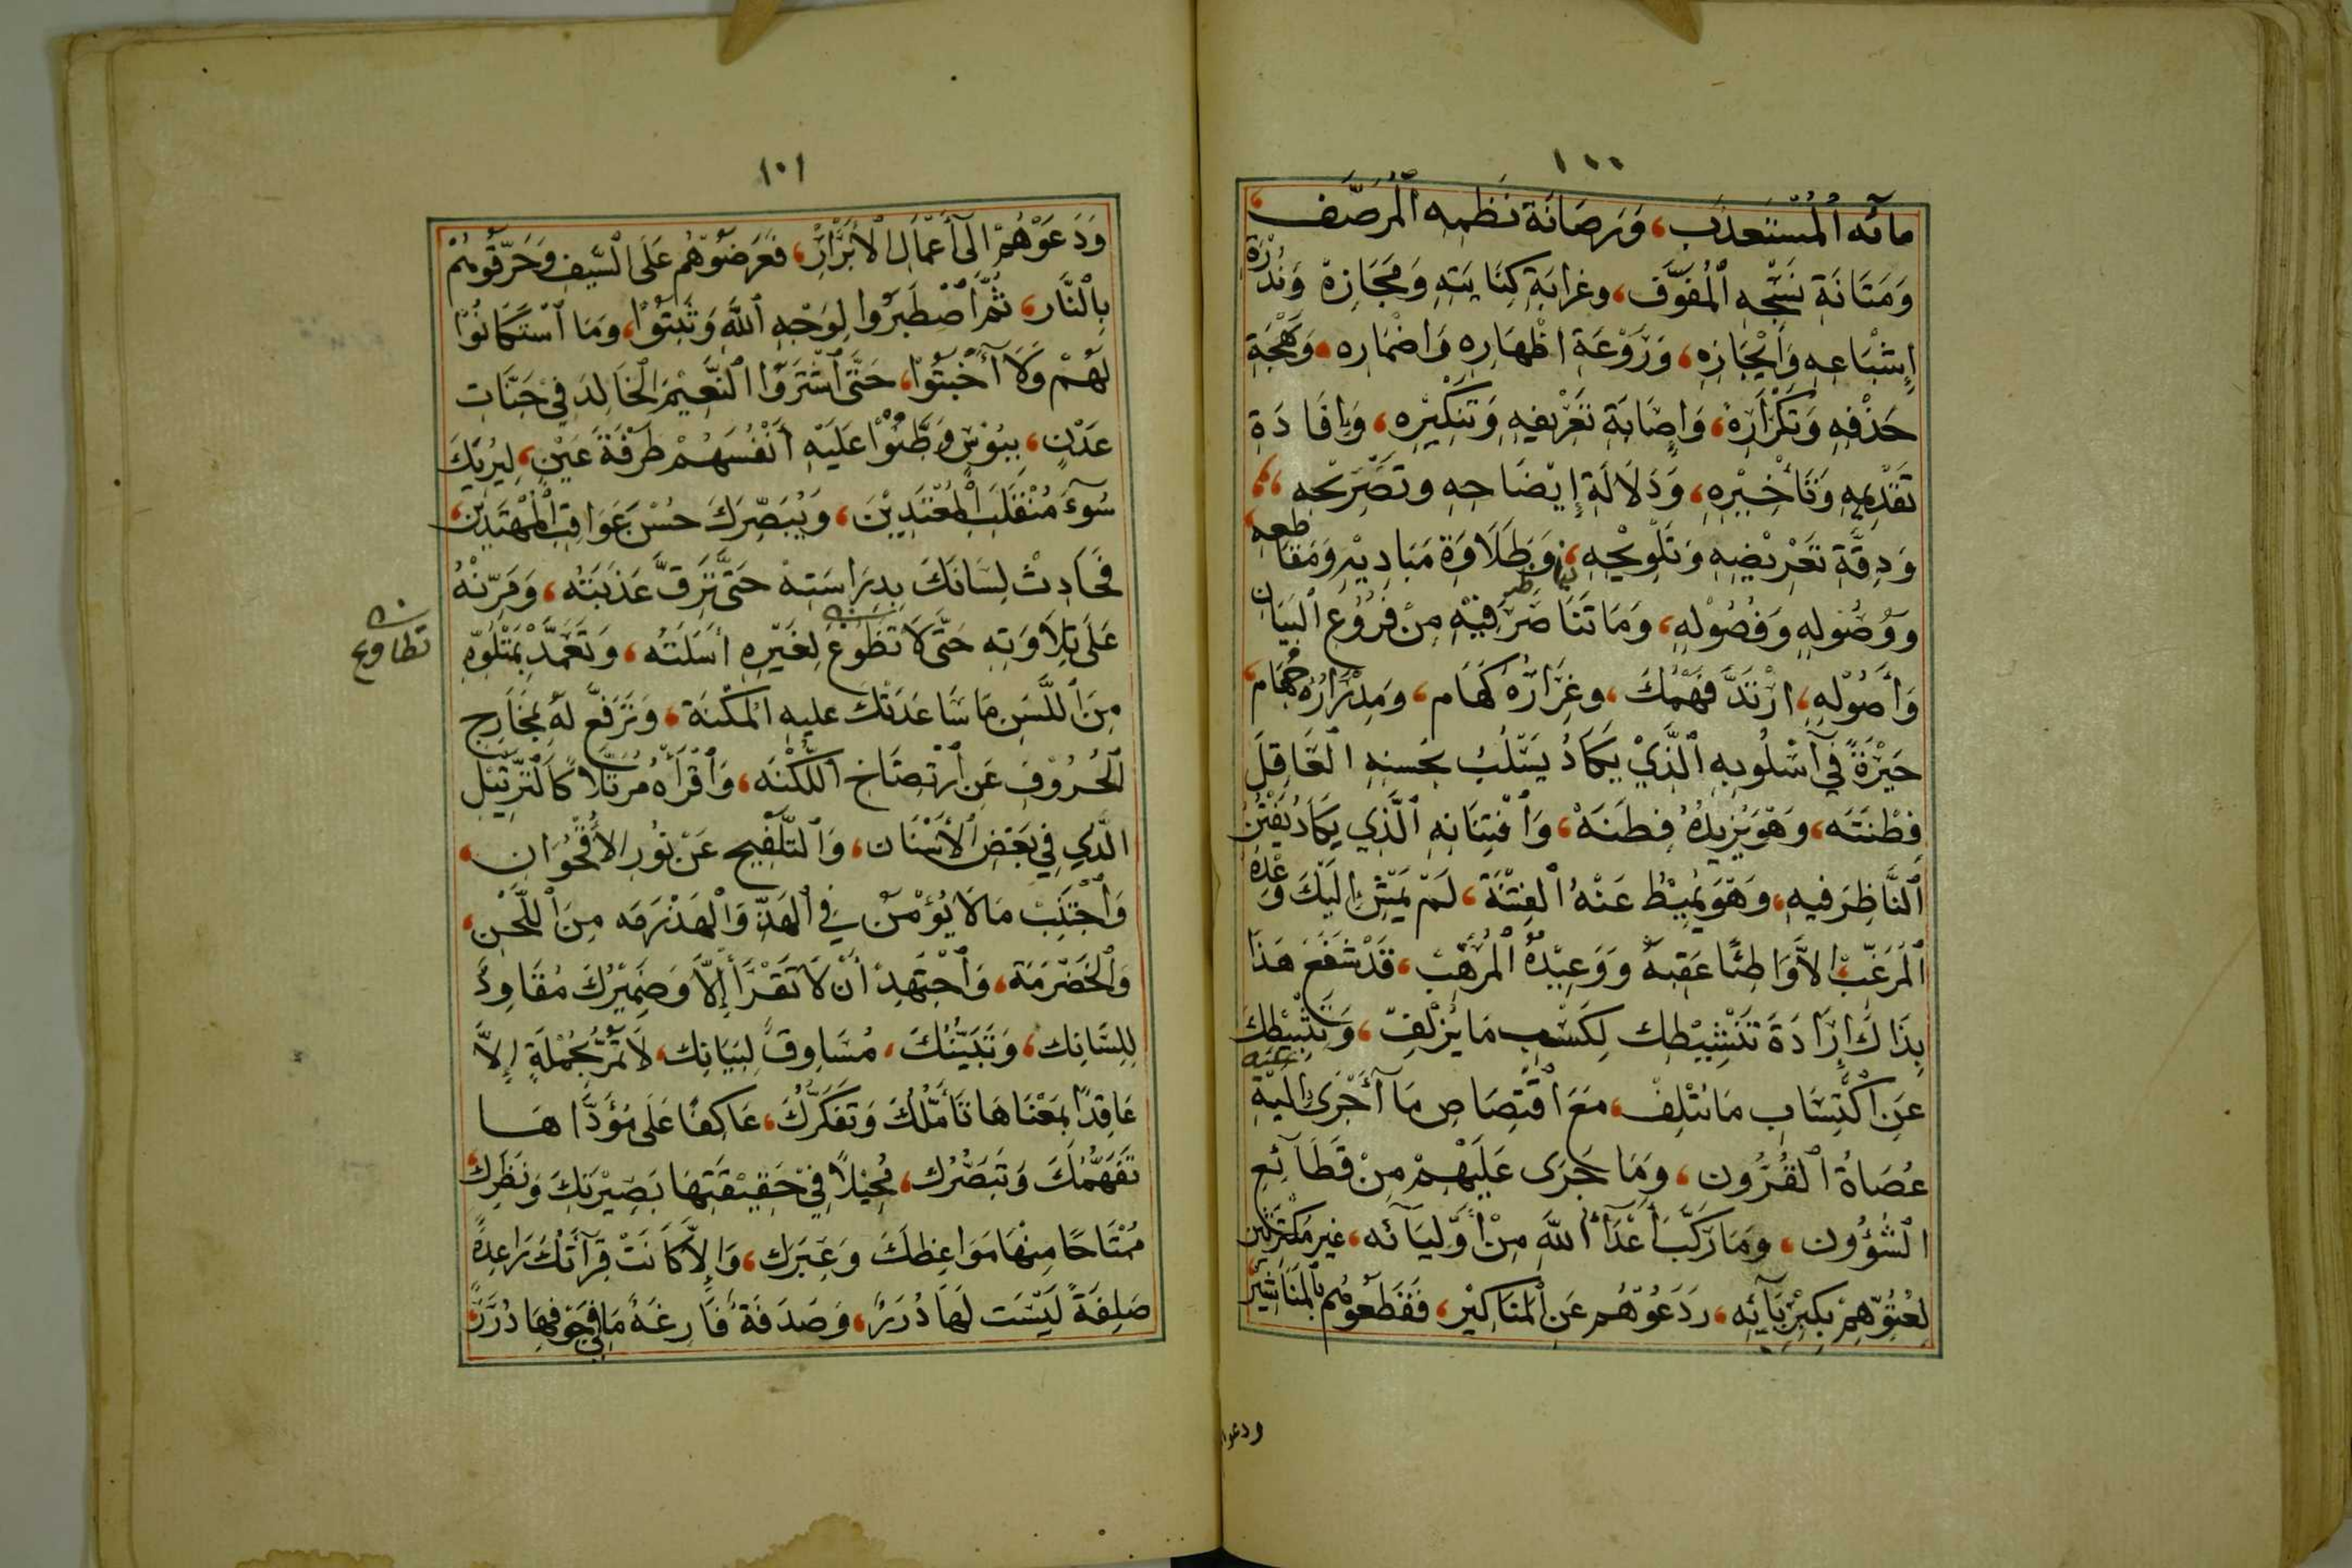 ١٠٠
مَائِهِ ٱلْمُسْتَعْذَبِ، وَرَصَانَةِ نَظْمِهِ ٱلْمُرَصَّفِ،
وَمَتَانَةِ نَسْجِهِ ٱلْمُفَوَّفِ، وغرابَةِ كِنَايَتِهِ وَمَجَازِهْ وَنُدْرَةِ
إِشْبَاعِهِ وَاِيْجَازِهِ، وَرَوْعَةِ اظْهَارِهِ وَاضْمَارِه، وَبَهْجَةِ
حَذْفِهِ وَتَكْرَارِهْ، وَاِصَابَةِ تَعْرِيفِهِ وَتَنْكِيْرِه، وَاِفَادَةِ
تَقْدِيْمِهِ وَتَأْخِيْرِهِ، وَدَلَالَةِ إِيْضَاحِهِ وتَصْرِيْحِهِ،،
وَدِقَّةِ تَعْرِيْضِهِ وَتَلْوِيْحِهِ، وَطَلَاوَةِ مَبَادِيْهِ وَمَقَاطِعِهِ،
وَوُصُولِهِ وَفُصُوْلِهِ، وَمَا تَنَاصَرَ فِيْهِ مِنْ فُرُوْعِ ٱلبَيَانِ
وَأُصُوْلِهِ، ارْتَدَّ فَهْمُكَ، وغِرَارُهُ كَهَام، وَمِدْرَارُهُ جَهَام،
حَيْرَةً فِي أُسْلُوبِهِ ٱلَّذِيْ يَكَادُ يَسْلُبُ بِحُسنِهِ ٱلْعَاقِلَ
فِطْنَتَه، وَهْوَ يَزِيدُهُ فِطنَهْ، وَاْفْتِنَانِهِ ٱلَّذِي يَكَادُ يَفْتِنُ
ٱلنَّاظِرَ فِيهِ، وَهْوَ يُمِيْطُ عَنْهُ ٱلفِتْنَة، لَمْ يَمْشِ اِلَيْكَ وَعْدُهُ
ٱلْمُرَغِّبُ الاَّ وَاطِئًا عَقِبَهُ وَوَعِيْدُهُ ٱلْمُرَهِّبْ، قَدْ شَفَعَ هَذَا
بِذَاكَ اِرَادَةَ تَنْشِيْطِكَ لِكَسْبِ مَا يُزْلِفْ، وَتَثْبِيْطِكَ
عَنِ اكْتِسَابِ مَا يُتْلِفْ، مَعَ اقْتِصَاصِ مَا أَجْرَى اِلَيْهِ
عُصَاةُ ٱلقُرُون، وَمَا جَرَى عَلَيْهِمْ مِنْ فَظَائِعِ
ٱلشُّؤُون، وَمَا رَكِبَ أَعْدَاءُ اللهِ مِنْ أَوْلِيَائِه، غَيرِ مُكْتَرِثِين
لِعُتُوِّهِمْ بِكِبْرِيَائِه، رَدَعُوْهُم عَنِ ٱلمَنَاكِيْر، فَقَطَعُوهُم بِٱلمَنَاشِيْر،
ودعوا
١٠١
وَدَعَوْهُمْ الَى أَعْمَالِ الْأَبْرَارْ، فَعَرَضُوْهُم عَلَى السَّيفِ وَحَرَّقُوهُمْ
بِالْنَّار، ثُمَّ اصْطَبَرُوا لِوَجْهِ ٱللهِ وَثَبَتُوْا، وَمَا ٱسْتَكَانُوْا
لَهُمْ وَلَا أَخْبَتُوْا، حَتَّى اشْتَرَوُا ٱلنَّعِيْمَ الْخَالِدَ فِيْ جَنَّاتِ
عَدْنٍ، بِبُؤْسٍ وَطَّنُوْا عَلَيْهِ أَنْفُسَهُمْ طَرْفَةَ عَيْنٍ، لِيُرِيَكَ
سُوءَ مُنْقَلَبِ الْمُعْتَدِيْنَ، وَيُبَصِّرَكَ حُسْنَ عَوَاقِبِ الْمُهْتَدِينَ،
فَحَادِثْ لِسَانَكَ بِدِرَاسَتِهْ حَتَّى تَرِقَّ عَذَبَتُه، وَمَرِّنْهُ
عَلَى تِلَاوَتِهِ حَتَّى لَا تَطُوْعَ لِغَيْرِهِ أَسَلَتُه، وَتَعَمَّدْ بِمَتْلُوِّهِ
تطاوع
مِنَ ٱللَّسَنِ مَا سَاعَدَتْكَ عليهِ المُكْنَة، وَتَرَفَّعْ لَهُ بِمَخَارِجِ
ٱلْحُرُوْفِ عَنِ ٱرْتِضَاخِ اللُّكْنَه، وَٱقْرَأْهُ مُرَتِّلًا كَالْتَّرْتِيْلِ
الَّذِي فِي بَعْضِ الْأَسْنَان، وَٱلتَّفْلِيجِ عَنْ نُورِ الأُقْحُوَان،
وَاجْتَنِبْ مَا لَا يُؤْمَنُ فِي ٱلْهَذِّ وَالْهَذْرَمَه مِنَ ٱللَّحْنِ،
وَالْخَضْرَمَة، وَٱجْتَهِدْ أَنْ لَا تَقْرَأَ إِلاَّ وَضَمِيْرُكَ مُقَاوِدٌ
لِلِسَانِك، وَتَبَيُّنُكَ، مُسَاوِقٌ لِبَيَانِك، لَا تَمُرُّ بِجُمْلَةٍ إِلاَّ
عَاقِدًا بِمَعْنَاهَا تَأَمُّلَكَ وَتَفَكُّرَكَ، عَاكِفًا عَلَى مُؤَدَّاهَا
تَفَهُّمَكَ وَتَبَصُّرَك، مُجِيْلاً فِيْ حَقِيْقَتِهَا بَصِيْرَتَكَ وَنَظَرِكَ،
مُمْتَاحًا مِنْهَا مَوَاعِظَكَ وَعِبَرَك، وَاِلاَّ كَانَتْ قِرَأَتُكَ رَاعِدَةً
صَلِفَةً لَيْسَت لَهَا دُرَرٌ، وَصَدَفَةً فَارِغَةً مَا فِي جَوْفِهَا دُرَرٌ،